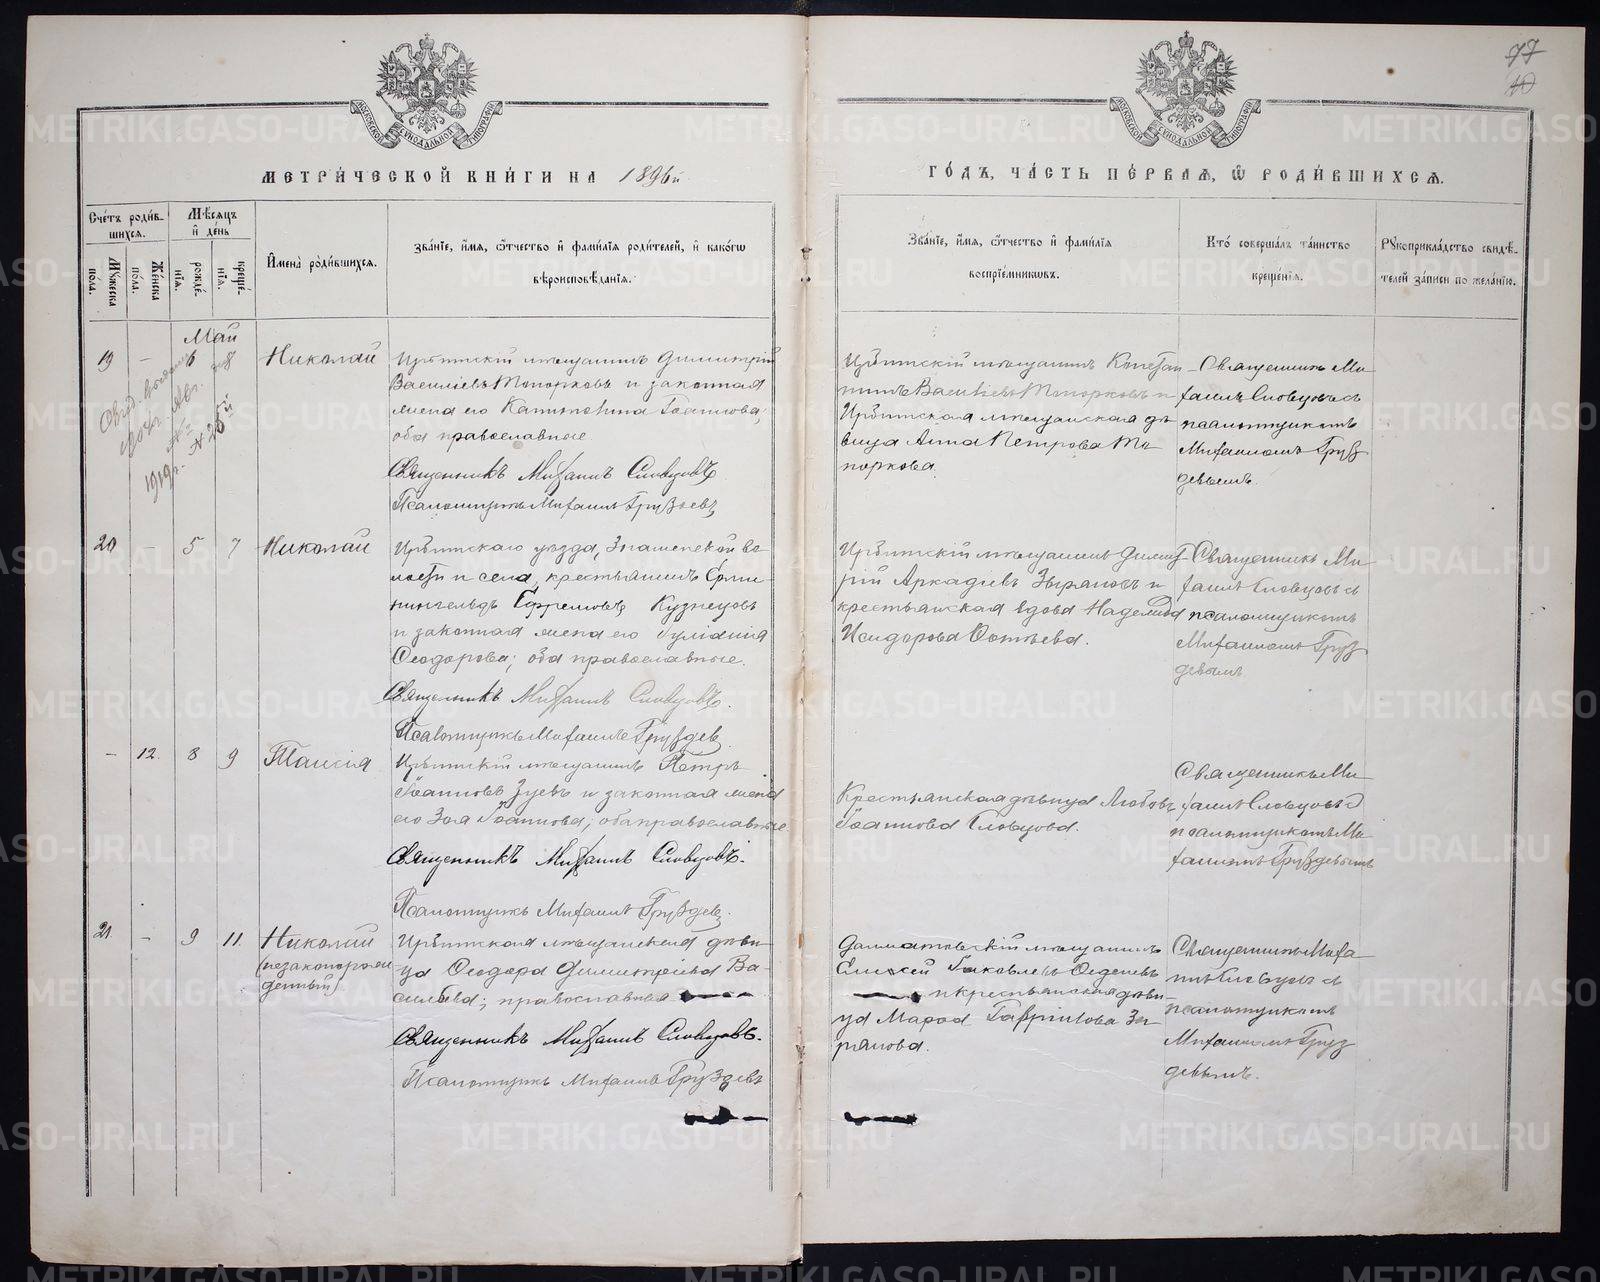 77
МЕТРИ́ЧЕСКОЙ КНИ́ГИ НА 1896й
ГО́ДЪ, ЧА́СТЬ ПЕ́РВАЯ, Ѽ РОДИ́ВШИХСЯ.
Сче́тъ роди́в-
шихся.
Му́жеска пола.
Же́нска по́ла.
Мѣ́сяцъ
и҆ де́нь
рожде́-
нїя.
креще́-
нїя.
И҆мена̀ роди́вшихся.
Зва́нїе, и҆́мя, ѻ҆́тчество и҆ фами́лїя роди́телей, и҆ како́гѡ
вѣроисповѣ́данїя.
Зва́нїе, и҆́мя, ѻ҆́тчество и҆ фами́лїя
воспрїе́мникѡвъ.
Кто̀ соверша́лъ та́инство
креще́нїя.
Рꙋкоприкла́дство свидѣ́-
телей за́писи по жела́нїю.
Май
19 - 6 8 Николай
1919г.
Ирбитскій мѣщанинъ Димитрій
Василіевъ Топорковъ и законная
жена его Капитолина Іоаннова,
оба православные
Священникъ Михаилъ Словцовъ
Псаломщикъ Михаилъ Груздевъ
Ирбитскій мѣщанинъ Констан
тинъ Василіевъ Топорковъ и
Ирбитская мѣщанская дѣ
вица Анна Петрова То
поркова.
Священникъ Ми
хаилъ Словцовъ съ
псаломщикомъ
Михаиломъ Груз
девымъ.
20 - 5 7 Николай
Ирбитскаго уѣзда, Знаменской во
лости и села, крестьянинъ Ерми
нингельдъ Ефремовъ Кузнецовъ
и законная жена его Іуліанія
Ѳеодорова; оба православные.
Священникъ Михаилъ Словцовъ.
Псаломщикъ Михаилъ Груздевъ
Ирбитскій мѣщанинъ Димит
рій Аркадіевъ Зыряновъ и
крестьянская вдова Надежда
Исидорова
Священникъ Ми
хаилъ Словцовъ съ
псаломщикомъ
Михаиломъ Груз
девымъ
- 12. 8 9 Таисія
Ирбитскій мѣщанинъ Петръ
Іоанновъ Зуевъ и законная жена
его Зоя Іоаннова; оба православные
Священникъ Михаилъ Словцовъ.
Псаломщикъ Михаилъ Груздевъ.
Крестьянская дѣвица Любовь
Іоаннова Словцова.
Священникъ Ми
хаилъ Словцовъ съ
псаломщикомъ Ми
хаиломъ Груздевымъ
21 - 9 11. Николай
(незаконорож
денный)
Ирбитская мѣщанская дѣви
ца Ѳеодора Димитріева Ва
сильева; православная
Священникъ Михаилъ Словцовъ.
Псаломщикъ Михаилъ Груздевъ
Далматовскій мѣщанинъ
Елисей Іаковлевъ
и крестьянская дѣви
ца Гавриилова Зы
рянова.
Священникъ Миха
илъ Словцовъ съ
псаломщикомъ
Михаиломъ Груз
девымъ.
METRIKI.GASO-URAL.RU